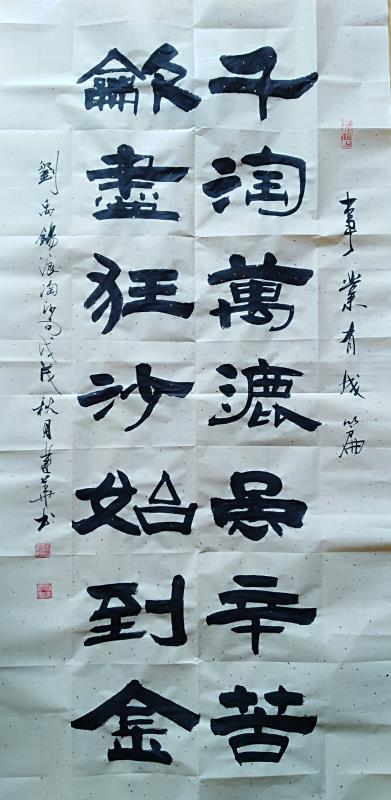 事業有成篇
千淘萬漉虽辛苦
龡盡狂沙始到金
劉禹錫浪淘沙句戊戌秋月華书